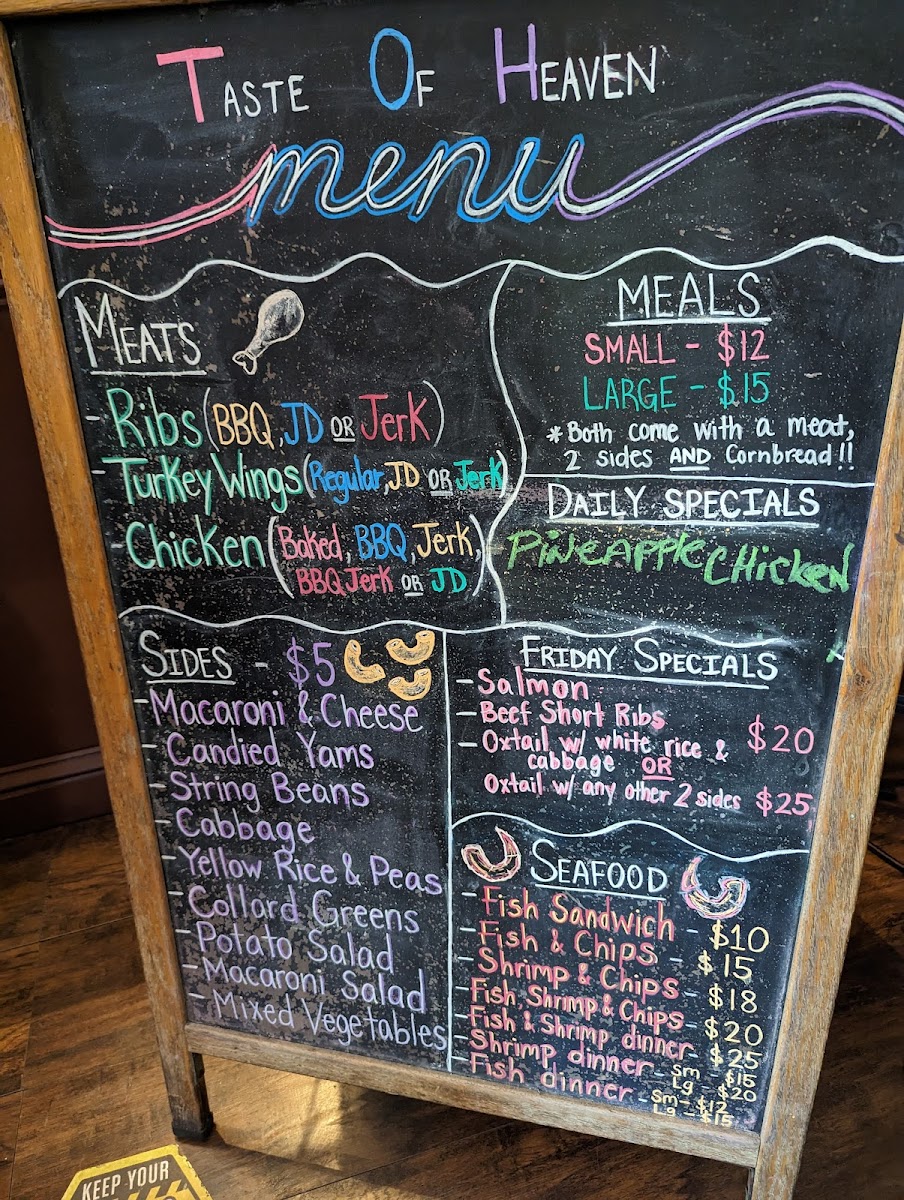 TASTE OF HEAVEN
menu
MEATS
- Ribs (BBQ, JD OR Jerk)
- Turkey Wings (Regular, JD OR Jerk)
- Chicken (Baked, BBQ, Jerk,
BBQ Jerk OR JD)
MEALS
SMALL - $12
LARGE - $15
*Both come with a meat,
2 sides AND Cornbread!!
DAILY SPECIALS
PiNeAPPle CHicKeN
SIDES - $5
- Macaroni & Cheese
- Candied Yams
- String Beans
- Cabbage
- Yellow Rice & Peas
- Collard Greens
- Potato Salad
- Macaroni Salad
- Mixed Vegetables
FRIDAY SPECIALS
- Salmon
- Beef Short Ribs
- Oxtail w/ white rice & $20
cabbage OR
Oxtail w/ any other 2 sides $25
SEAFOOD
- Fish Sandwich - $10
- Fish & Chips - $15
- Shrimp & Chips - $18
- Fish, Shrimp & Chips - $20
- Fish & Shrimp dinner - $25
- Shrimp dinner - Sm - $15
Lg - $20
- Fish dinner - Sm - $12
Lg - $15
KEEP YOUR